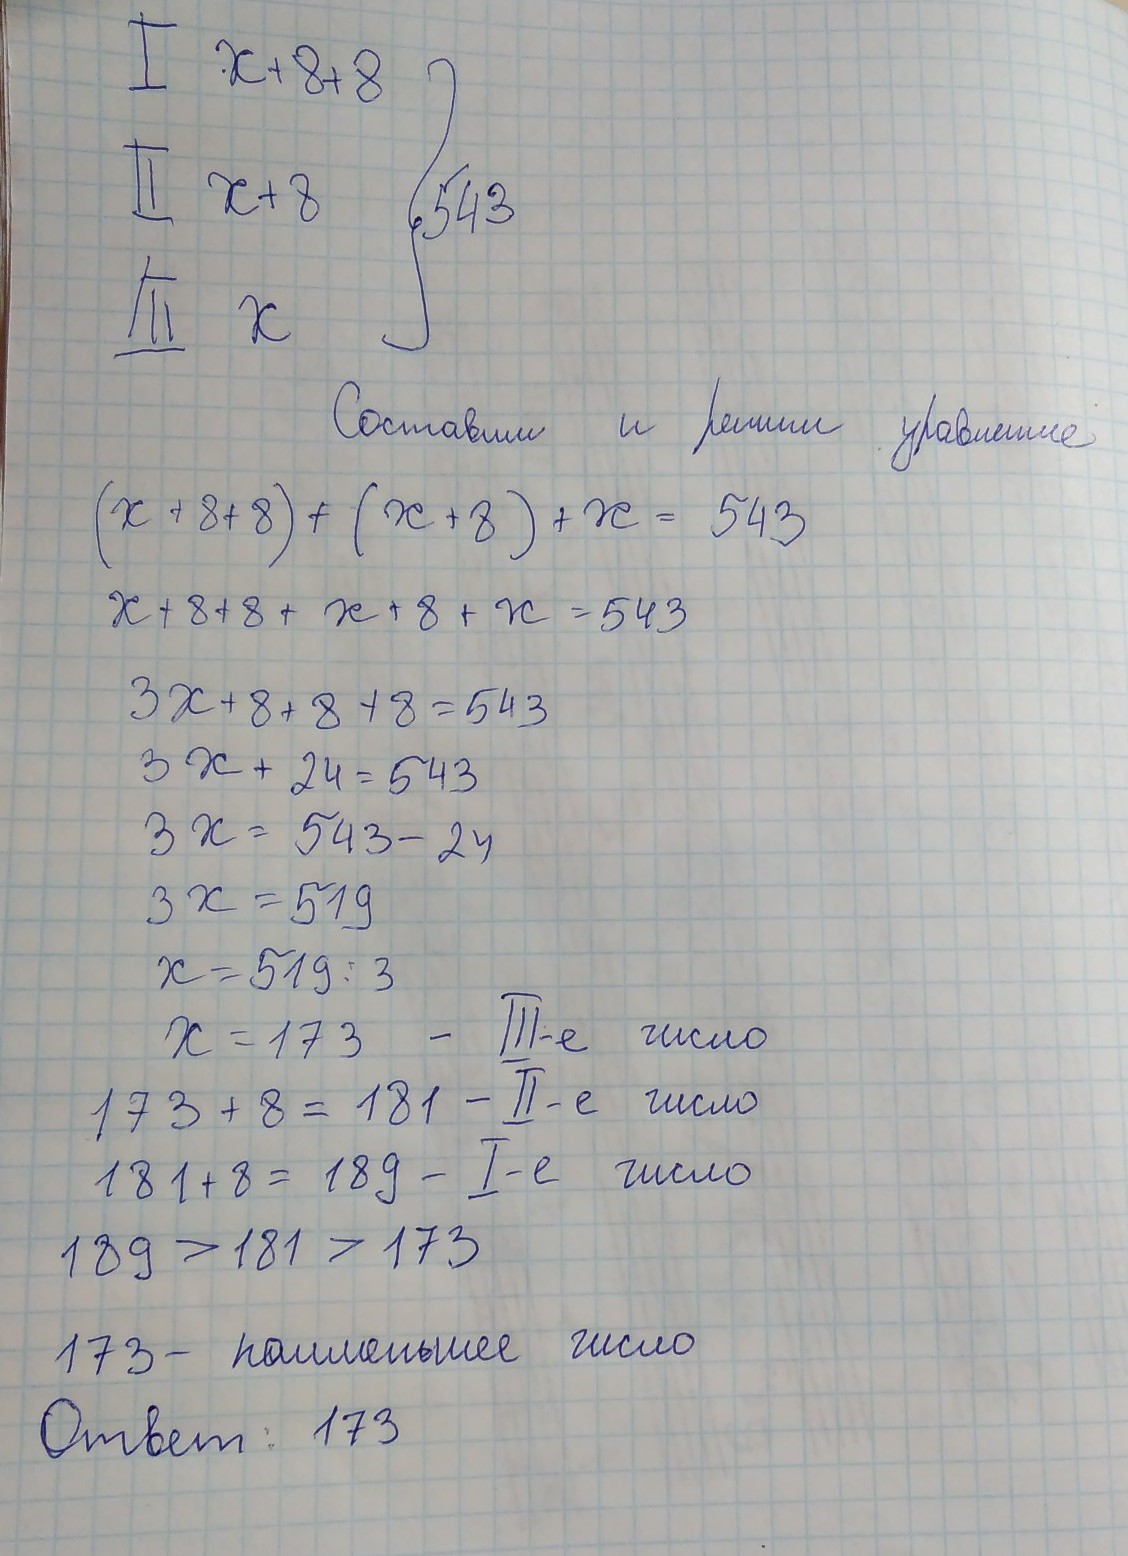 I x+8+8
II x+8
543
III x
Составим и решим уравнение
(x+8+8)+(x+8)+x= 543
x+8+8+x+8+x=543
3x+8+8+8=543
3x+24=543
3x= 543-24
3x=519
x=519:3
x=173 - III-е число
173+8=181-II-е число
181+8=189-I-е число
189>181>173
173- наименьшее число
Ответ: 173